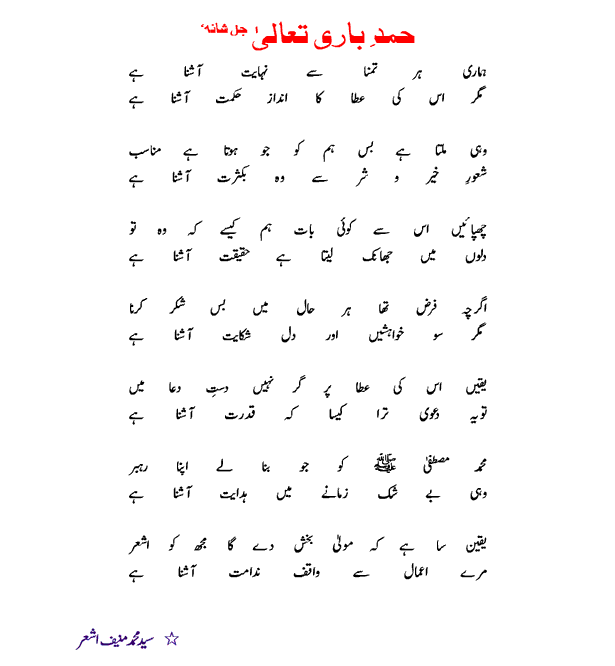 حمدِ باری تعالیٰ جل شانہٗ
ہماری ہر تمنا سے نہایت آشنا ہے
مگر اس کی عطا کا انداز حکمت آشنا ہے
وہی ملتا ہے بس ہم کو جو ہوتا ہے مناسب
شعورِ خیر و شر سے وہ بکثرت آشنا ہے
چھپائیں اس سے کوئی بات ہم کیسے کہ وہ تو
دلوں میں جھانک لیتا ہے حقیقت آشنا ہے
اگرچہ فرض تھا ہر حال میں بس شکر کرنا
مگر سو خواہشیں اور دل شکایت آشنا ہے
یقیں اس کی عطا پر گر نہیں دستِ دعا میں
تو یہ دعویٰ ترا کیسا کہ قدرت آشنا ہے
محمد مصطفیٰ ﷺ کو جو بنا لے اپنا رہبر
وہی بے شک زمانے میں ہدایت آشنا ہے
یقین سا ہے کہ مولیٰ بخش دے گا مجھ کو اشعر
مرے اعمال سے واقف ندامت آشنا ہے
☆ سید محمد منیف اشعر